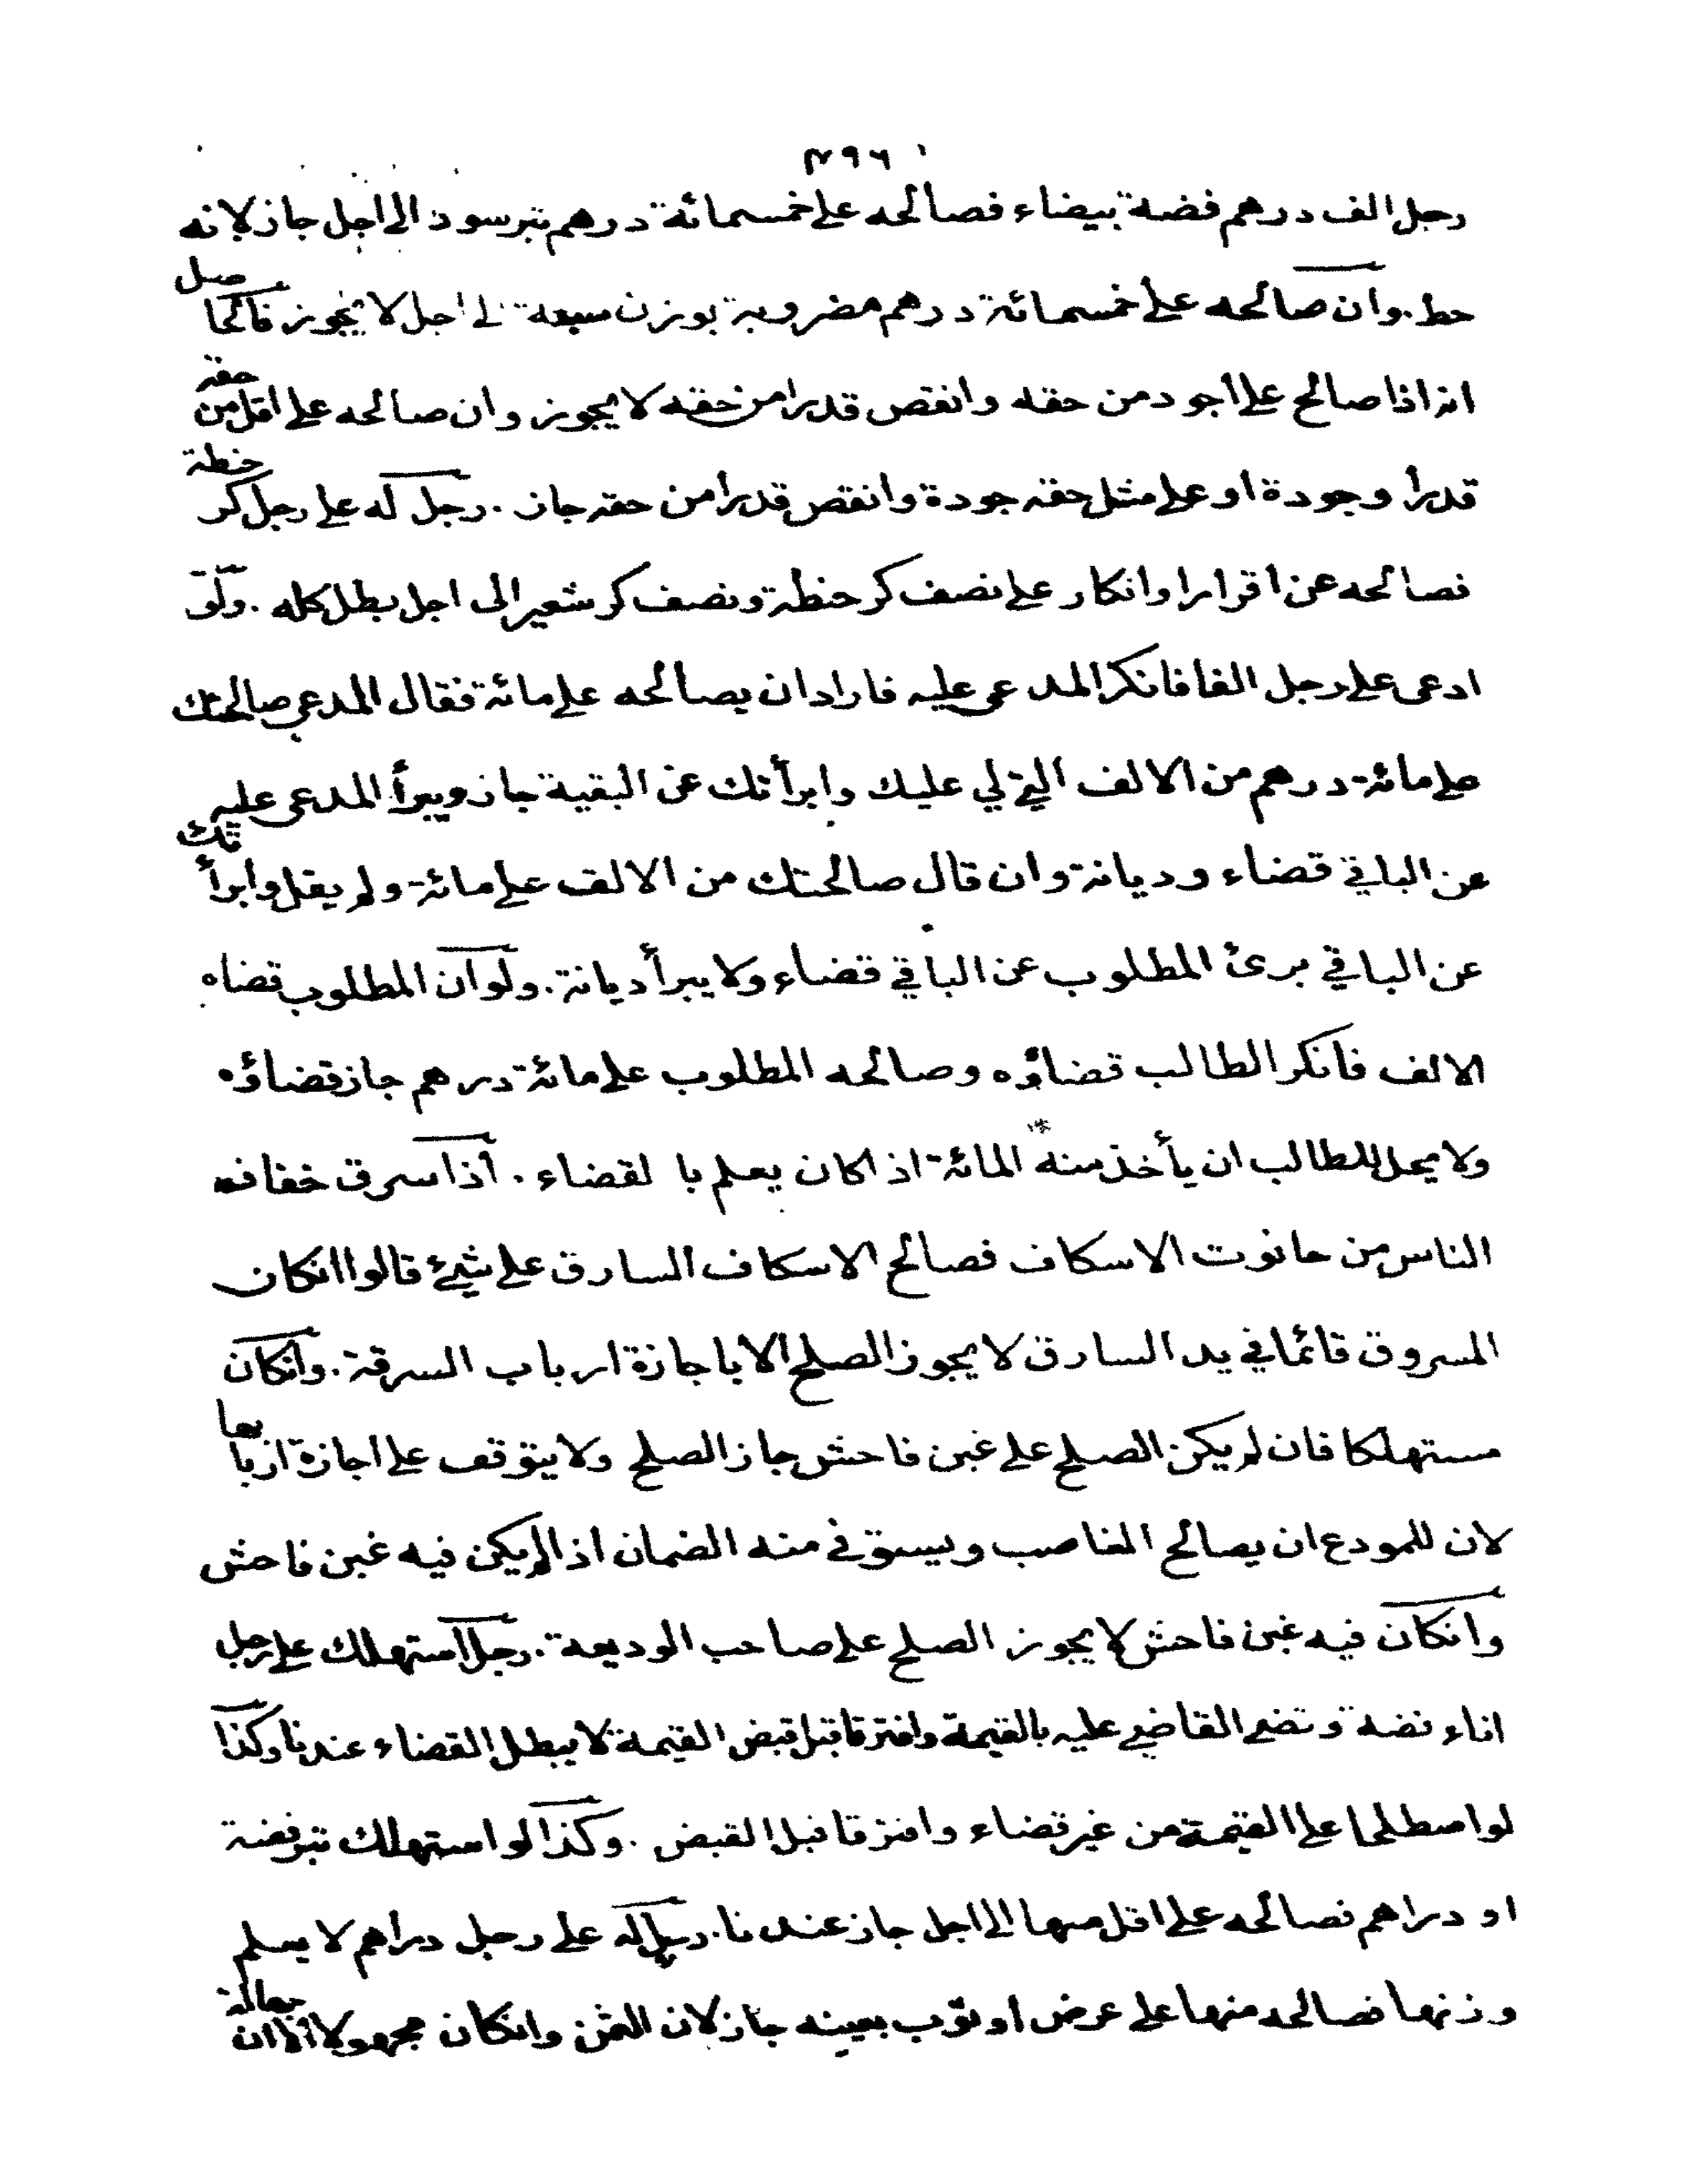 ٣٩٦
رجل الف درهم فضة بيضاء فصالحه على خمسمائة درهم تبر سود الى اجل جاز لانه
حط. وان صالحه على خمسمائة درهم مضروبة بوزن سبعة الى اجل لا يجوز فالحاصل
انه اذا صالح على أجود من حقه وانقص قدرا من حقه لا يجوز وان صالحه على اقل من حقه
قدرا وجودة او على مثل حقه جودة وانقص قدرا من حقه جاز. رجل له على رجل كر حنطة
فصالحه عن اقرار او انكار على نصف كر حنطة ونصف كر شعير الى اجل بطل كله. ولو
ادعى على رجل الفا فانكر المدعى عليه فاراد ان يصالحه على مائة فقال المدعي صالحتك
على مائة درهم من الالف التي لي عليك وابرأتك عن البقية جاز ويبرأ المدعى عليه
عن الباقي قضاء وديانة وان قال صالحتك من الالف على مائة ولم يقل وابرأتك
عن الباقي برئ المطلوب عن الباقي قضاء ولا يبرأ ديانة. ولو ان المطلوب قضاه
الالف فانكر الطالب قضاؤه وصالحه المطلوب على مائة درهم جاز قضاؤه
ولا يحل للطالب ان يأخذ منه المائة اذا كان يعلم با لقضاء. اذا سرق خفاف
الناس من حانوت الاسكاف فصالح الاسكاف السارق على شيئ قالوا انكان
المسروق قائما في يد السارق لا يجوز الصلح الا باجازة ارباب السرقة. وانكان
مستهلكا فان لم يكن الصلح على غبن فاحش جاز الصلح ولا يتوقف على اجازة اربابها
لان للمودع ان يصالح الغاصب ويستوفي منه الضمان اذا لم يكن فيه غبن فاحش
وانكان فيه غبن فاحش لا يجوز الصلح على صاحب الوديعة. رجل استهلك على رجل
اناء فضة وقضى القاضي عليه بالقيمة وافترقا قبل قبض القيمة لا يبطل القضاء عندنا وكذا
لو اصطلحا على القيمة من غير قضاء وافترقا قبل القبض. وكذا لو استهلك تبر فضة
او دراهم فصالحه على اقل منها الى اجل جاز عندنا. رجل له على رجل دراهم لا يعلم
وزنها فصالحه منها على عرض او ثوب بعينه جاز لان الثمن وانكان مجهولا الا ان جهالة